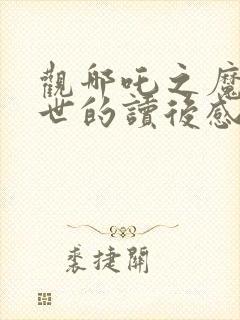 觀哪吒之魔
世的讀後感
裘捷開